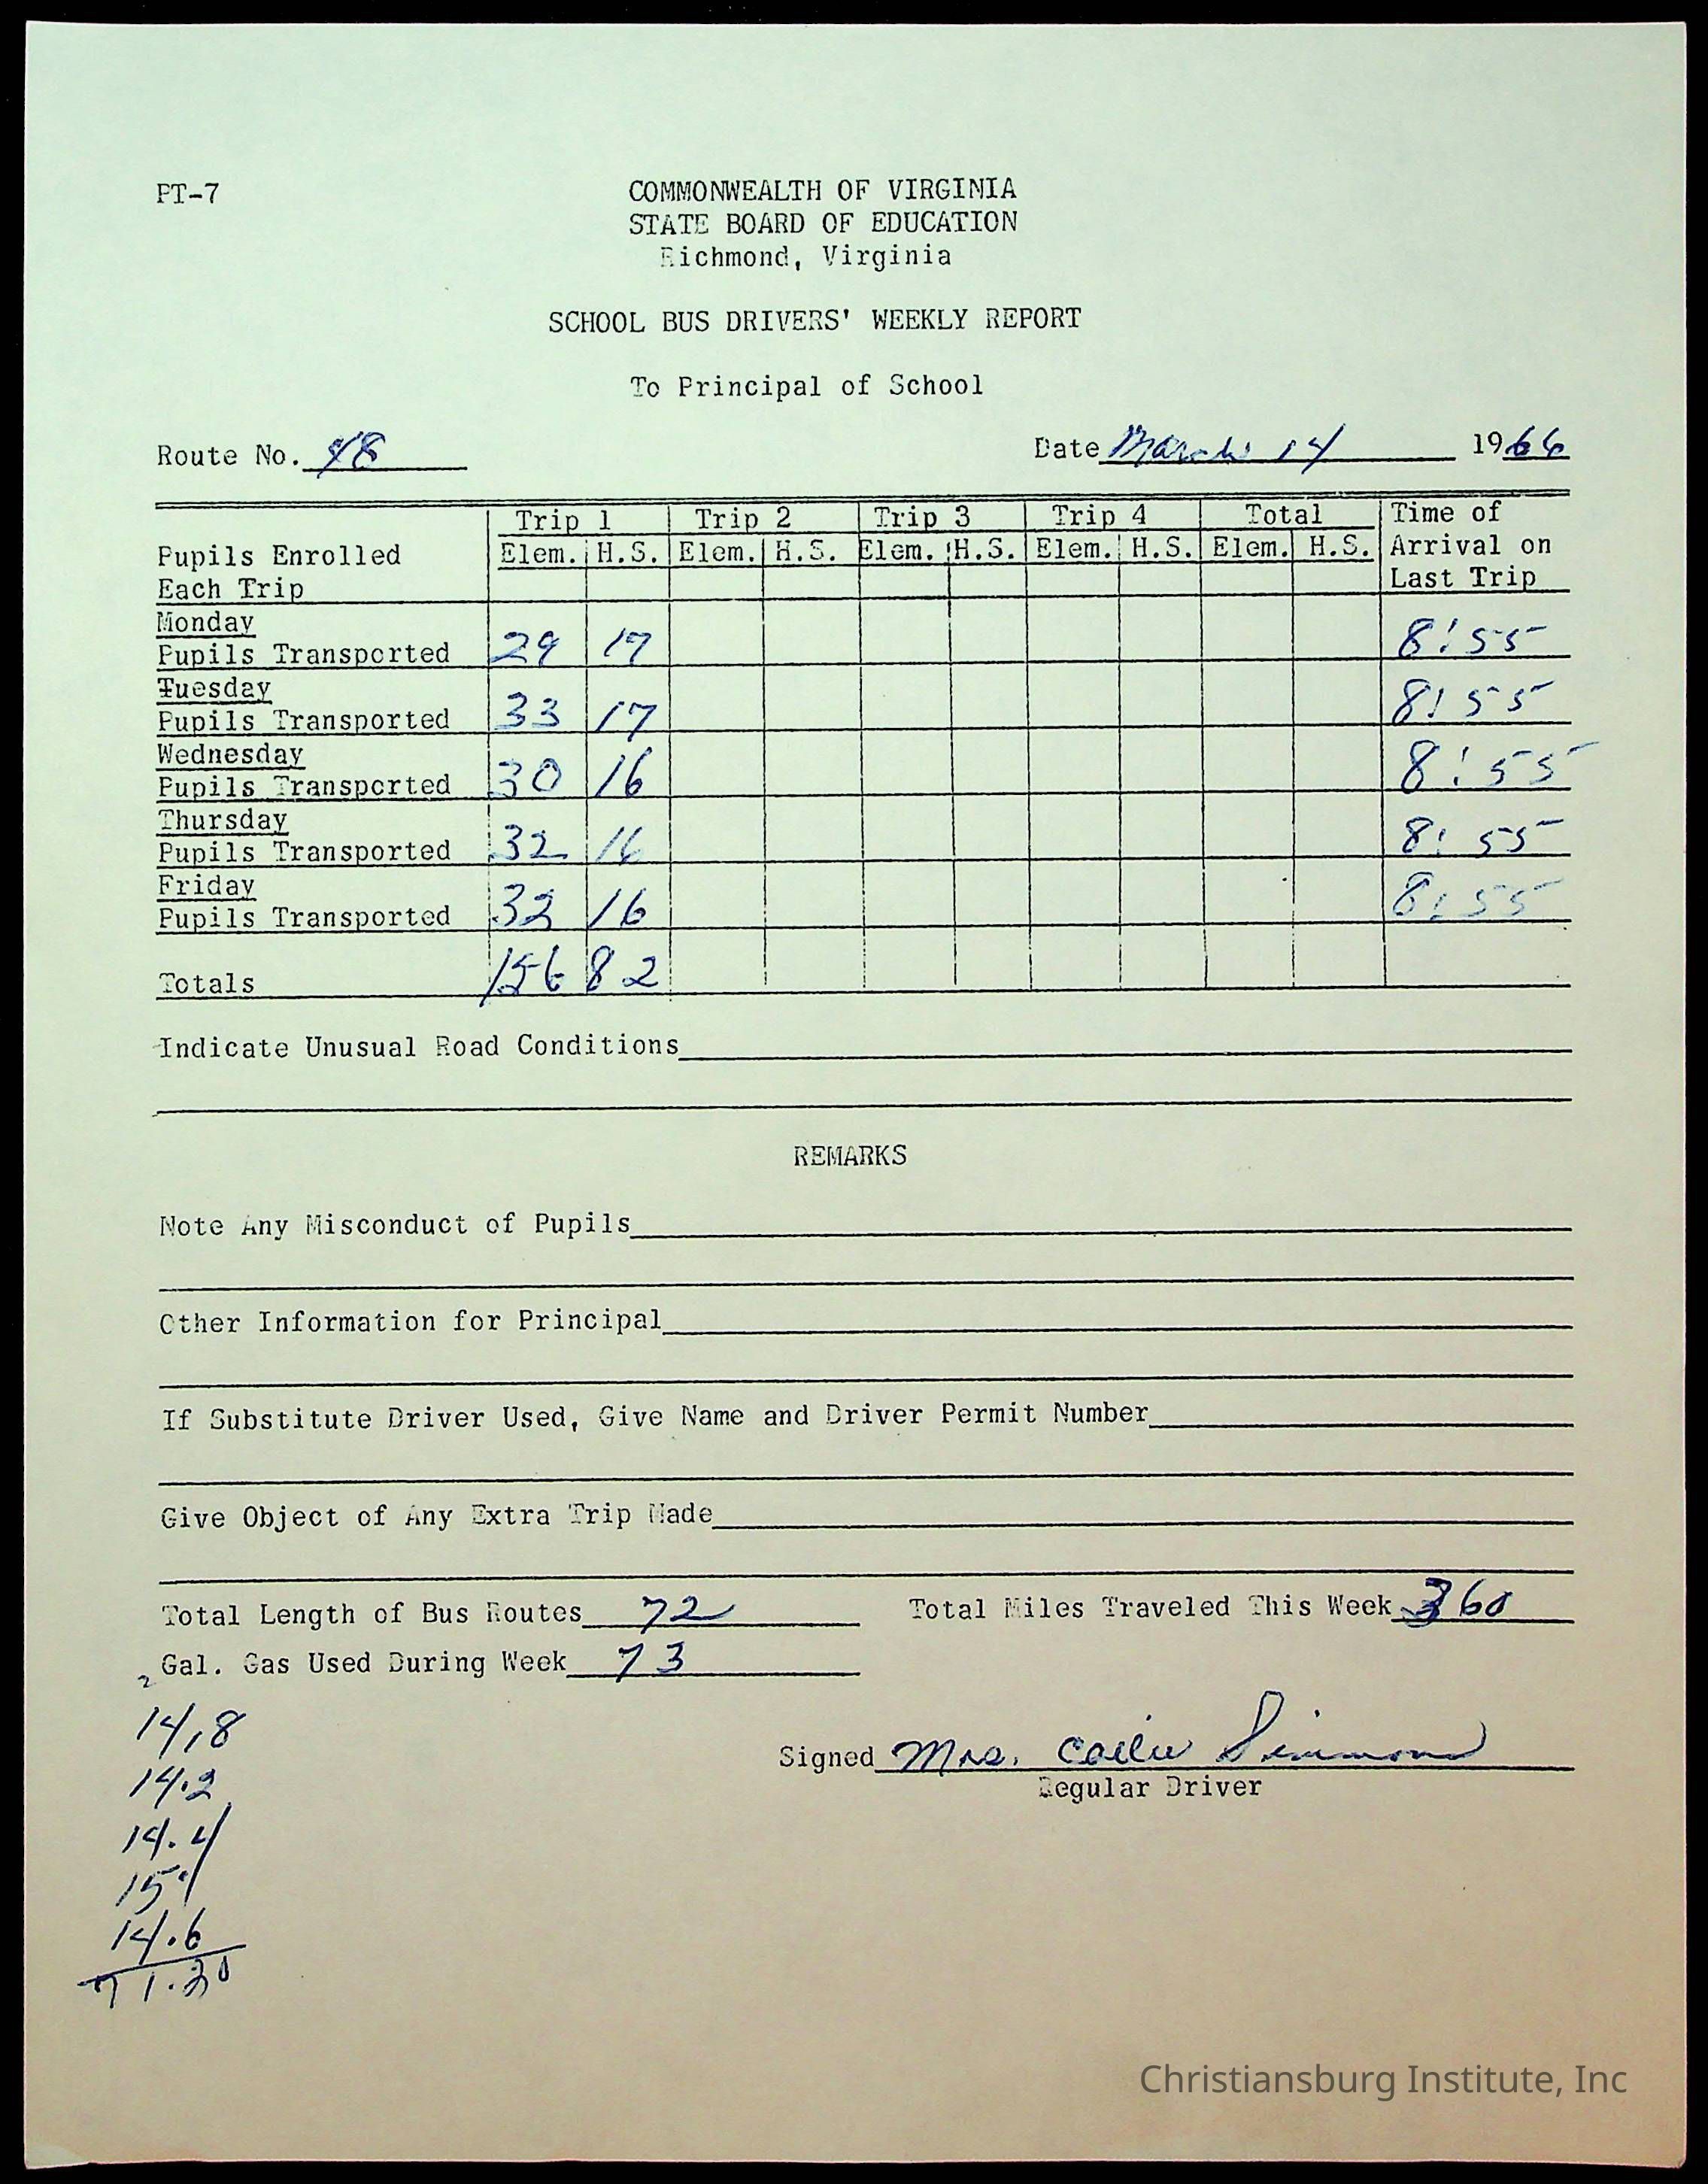 PT-7
COMMONWEALTH OF VIRGINIA
STATE BOARD OF EDUCATION
Richmond, Virginia
SCHOOL BUS DRIVERS' WEEKLY REPORT
To Principal of School
Route No. 48 Date March 14 1966
Trip 1 Trip 2 Trip 3 Trip 4 Total Time of
Pupils Enrolled Elem. H.S. Elem. H.S. Elem. H.S. Elem. H.S. Elem. H.S. Arrival on
Each Trip Last Trip
Monday
Pupils Transported 29 17 8:55
Tuesday
Pupils Transported 33 17 8:55
Wednesday
Pupils Transported 30 16 8:55
Thursday
Pupils Transported 32 16 8:55
Friday
Pupils Transported 32 16 8:55
Totals 156 82
Indicate Unusual Road Conditions
REMARKS
Note Any Misconduct of Pupils
Other Information for Principal
If Substitute Driver Used, Give Name and Driver Permit Number
Give Object of Any Extra Trip Made
Total Length of Bus Routes 72 Total Miles Traveled This Week 360
Gal. Gas Used During Week 73
14.8
14.2
Signed Mrs. Simmons
Regular Driver
14.4
15.1
14.6
71.30
Christiansburg Institute, Inc